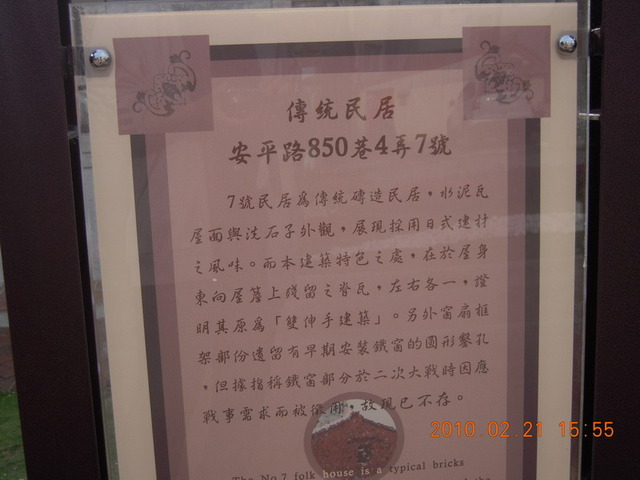 傳統民居
安平路850巷4弄7號
7號民居為傳統磚造民居，水泥瓦
屋面與洗石子外觀，展現採用日式建材
之風味。而本建築特色之處，在於屋身
東向屋簷上殘留之脊瓦，左右各一，證
明其原為「雙伸手建築」。另外窗扇框
架部份遺留有早期安裝鐵窗的圓形鑿孔
，但據指稱鐵窗部分於二次大戰時因應
戰事需求而被徵用，故現已不存。
The No.7 folk house is a typical bricks
2010.02.21 15:55